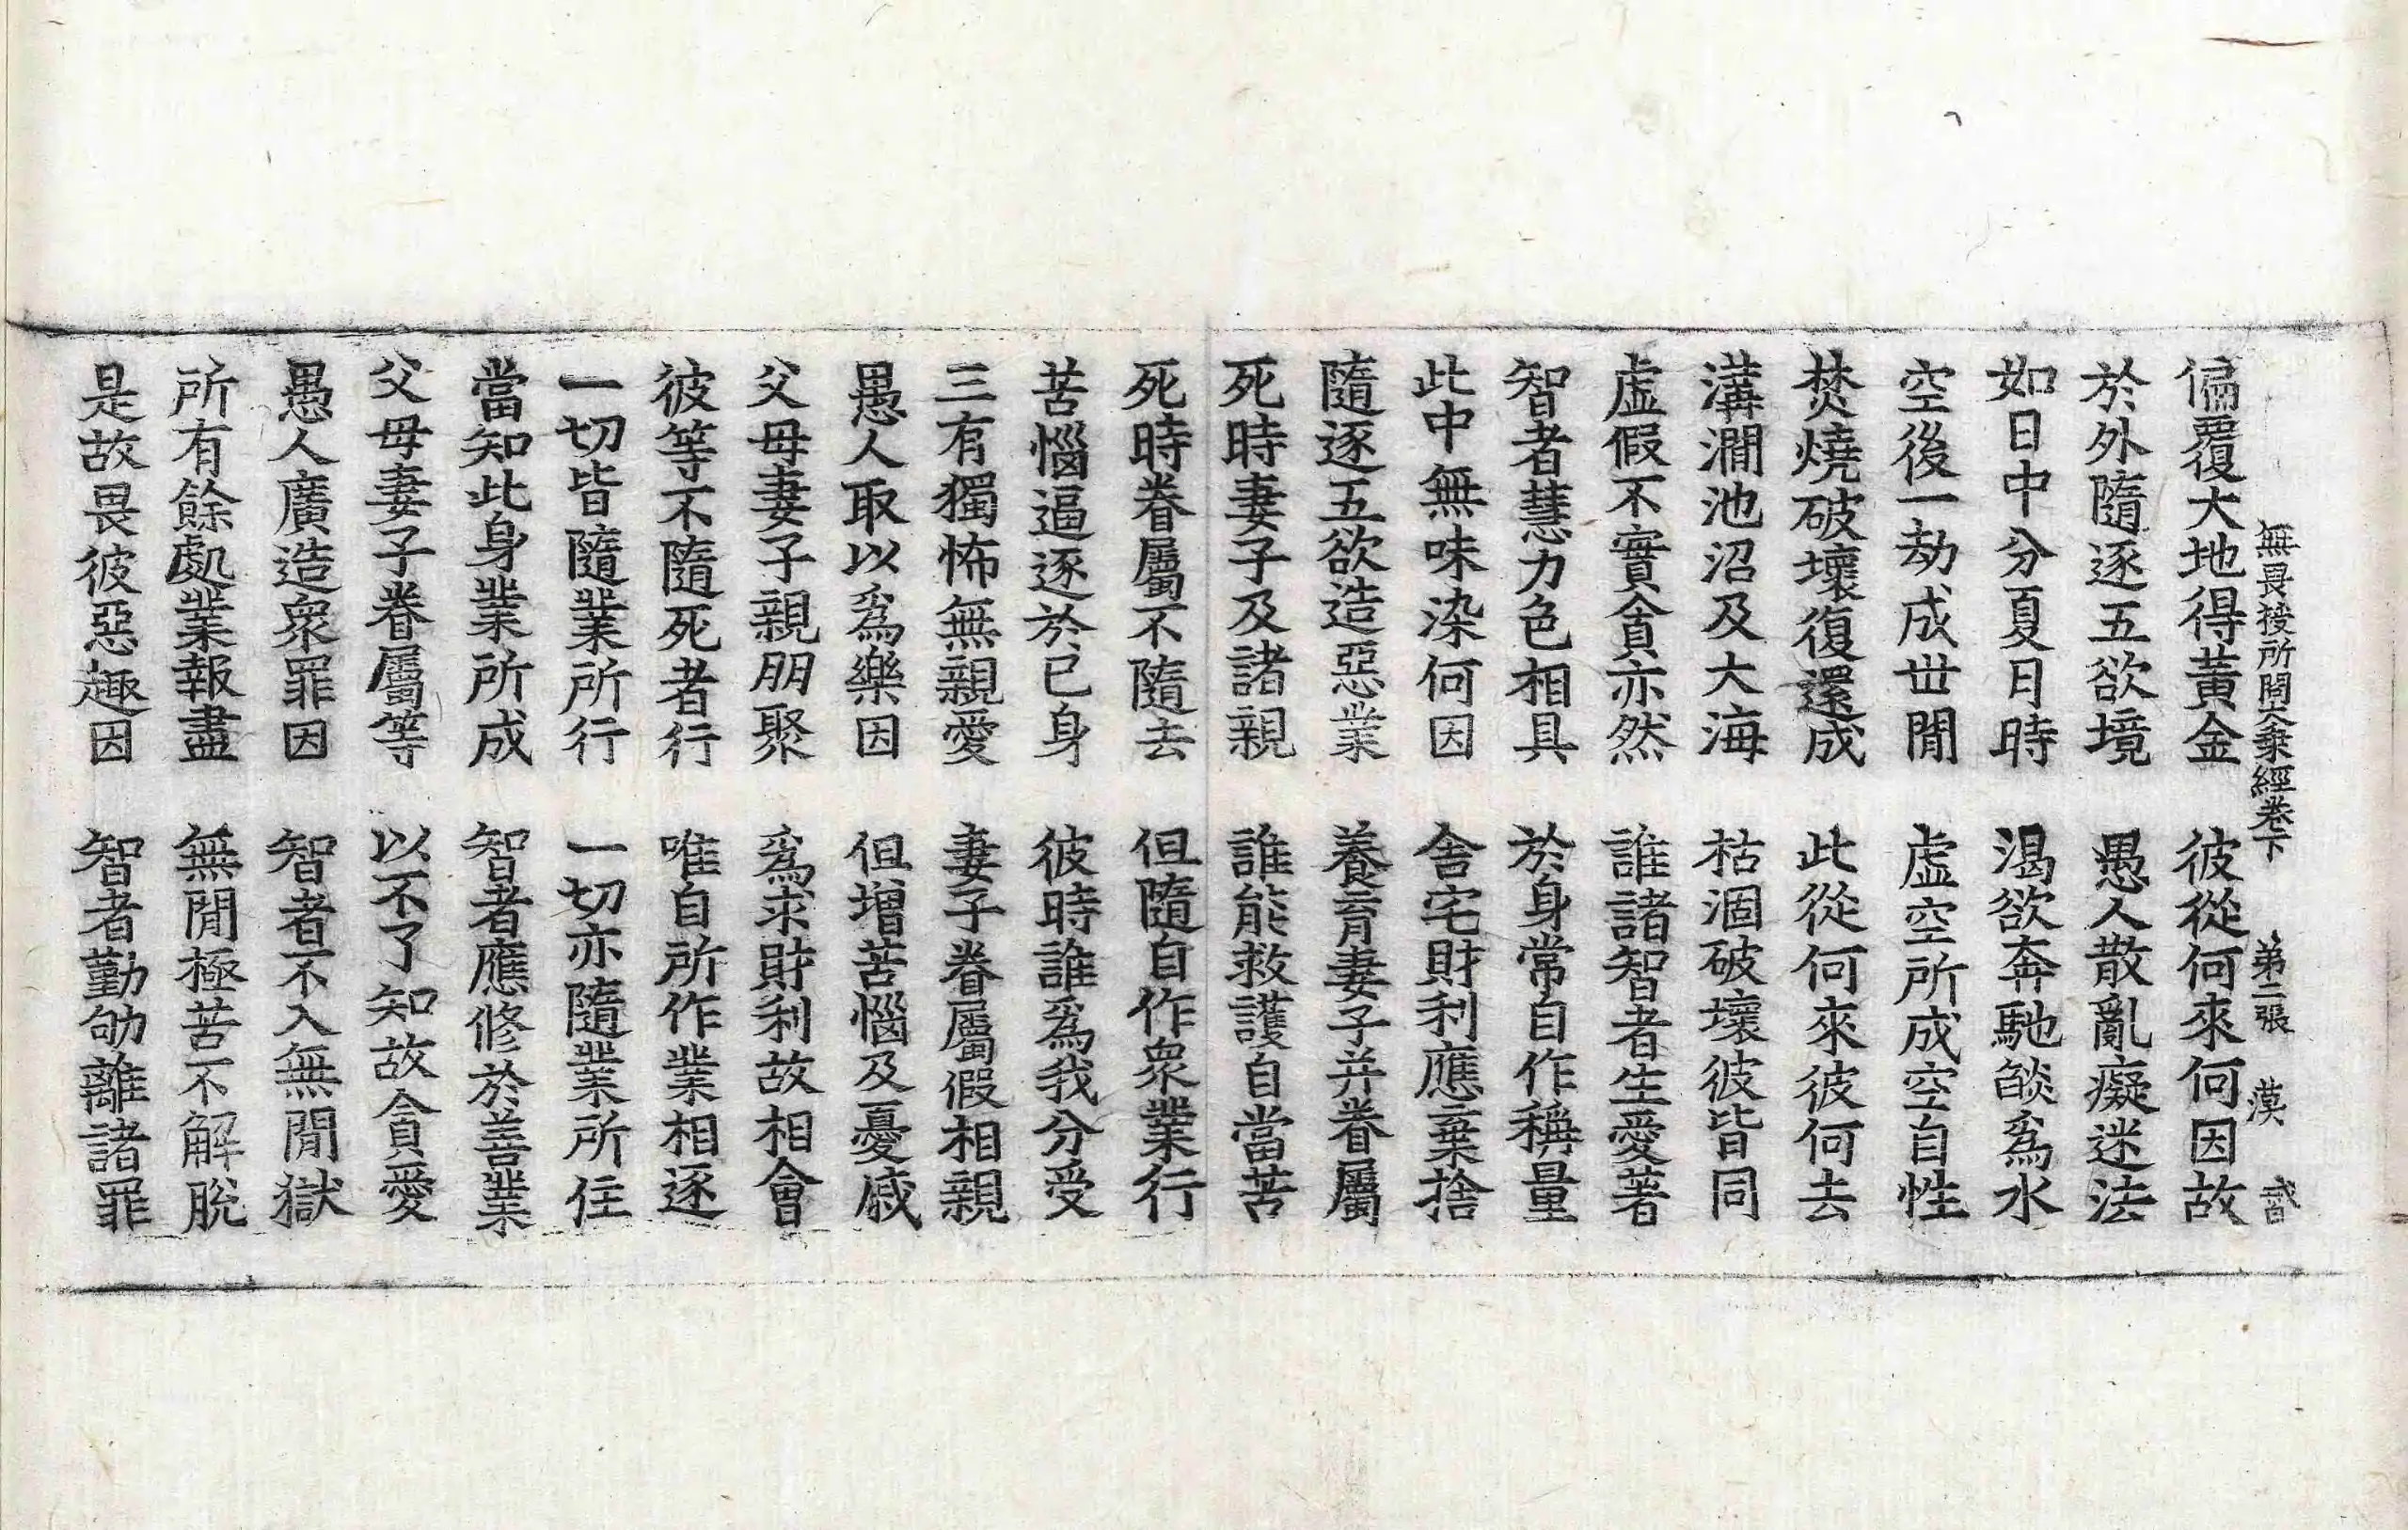 無畏授所問大乘經卷下 第二張 漠
徧覆大地得黃金 彼從何來何因故
於外隨逐五欲境 愚人散亂癡迷法
如日中分夏日時 渴欲奔馳燄爲水
空後一劫成世閒 虛空所成空自性
焚燒破壞復還成 此從何來彼何去
溝澗池沼及大海 枯涸破壞彼皆同
虛假不實貪亦然 誰諸智者生愛著
智者慧力色相具 於身常自作稱量
此中無味染何因 舍宅財利應棄捨
隨逐五欲造惡業 養育妻子并眷屬
死時妻子及諸親 誰能救護自當苦
死時眷屬不隨去 但隨自作衆業行
苦惱逼逐於已身 彼時誰爲我分受
三有獨怖無親愛 妻子眷屬假相親
愚人取以爲樂因 但增苦惱及憂慼
父母妻子親朋聚 爲求財利故相會
彼等不隨死者行 唯自所作業相逐
一切皆隨業所行 一切亦隨業所住
當知此身業所成 智者應修於善業
父母妻子眷屬等 以不了知故貪愛
愚人廣造衆罪因 智者不入無閒獄
所有餘處業報盡 無閒極苦不解脫
是故畏彼惡趣因 智者勤劬離諸罪